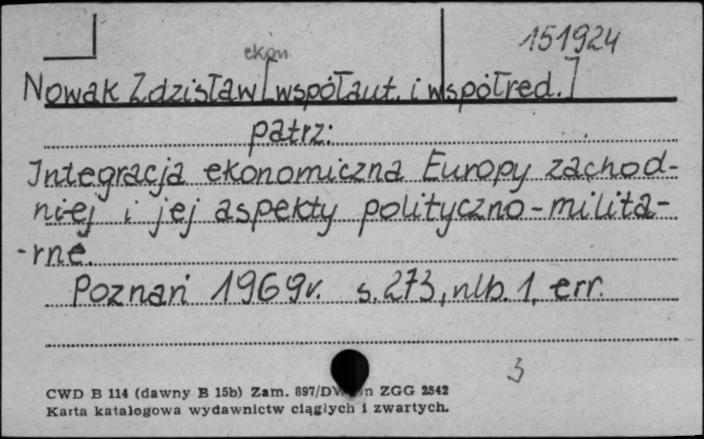 151924
ekon.
Nowak Zdzisław [współaut. i współred.]
patrz:
Integracja ekonomiczna Europy zachod-
niej i jej aspekty polityczno-milita-
-rne.
Poznań 1969r. s. 273, nlb. 1, err.
3
CWD B 114 (dawny B 15b) Zam. 897/D n ZGG 2542
Karta katalogowa wydawnictw ciągłych i zwartych.